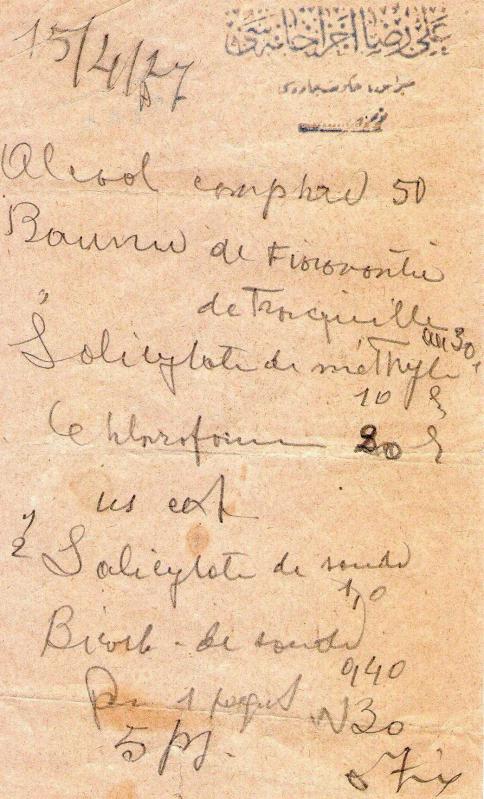 علي رضا اجزاخانه سى
15/4/27
Alcool camphré 50
Baume de Fioraventi
" de Tranquille
aa 30
Salicylate de méthyle
10
Chloroforme 20
us ext
2 Salicylate de soude
1,0
Bicarb. de soude
0,40
Pr 1 paquet
N 30
5 pj.